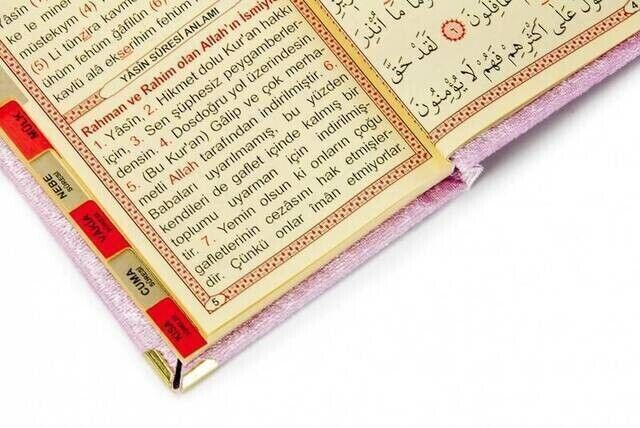 ke le mine
müstekıym (4)
(5) Li tünzira kavmen
ühüm fehüm ğafilûn (6)
kavlü alâ ekserihim fehüm
YÂSÎN SÛRESİ ANLAMI
Rahman ve Rahim olan Allah'ın İsmiyle
1. Yâsîn, 2. Hikmet dolu Kur'an hakkı
için, 3. Sen şüphesiz peygamberler
densin. 4. Dosdoğru yol üzerindesin.
5. (Bu Kur'an) Gâlip ve çok merha-
metli Allah tarafından indirilmiştir. 6.
Babaları uyarılmamış, bu yüzden
kendileri de gaflet içinde kalmış bir
toplumu uyarman için indirilmiş-
tir. 7. Yemin olsun ki onların çoğu
gafletlerinin cezasını hak etmişler-
dir. Çünkü onlar îmân etmiyorlar.
5
مَا أُنْذِرَ
غَافِلُونَ ﴿٦﴾ لَقَدْ حَقَّ
الْقَوْلُ عَلٰى أَكْثَرِهِمْ فَهُمْ لَا يُؤْمِنُونَ
MÜLK
NEBE SÛRESİ
VAKIA SÛRESİ
CUMA SÛRESİ
KISA SÛRELER